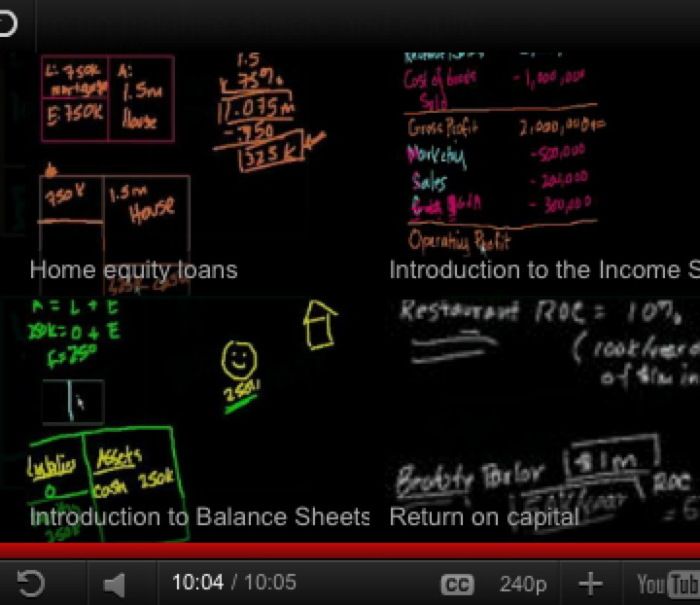 L: 750k A:
mortgage 1.5m
E: 750k House
1.5
x 75%
1.075m
- .750
325k
750k 1.5m
House
Home equity loans
Cost of Goods - 1,000,000
Sold
Gross Profit 2,000,000
Marketing -500,000
Sales - 200,000
G&A - 300,000
Operating Profit
Introduction to the Income S
A = L + E
250k = 0 + E
E = 250
250k
Liabilities Assets
0 Cash 250k
250k
Introduction to Balance Sheets
Restaurant ROC = 10%
(100k/year
of $1m in
Parlor $1m
50k/year ROC
= 5
Return on capital
10:04 / 10:05
CC 240p + YouTub